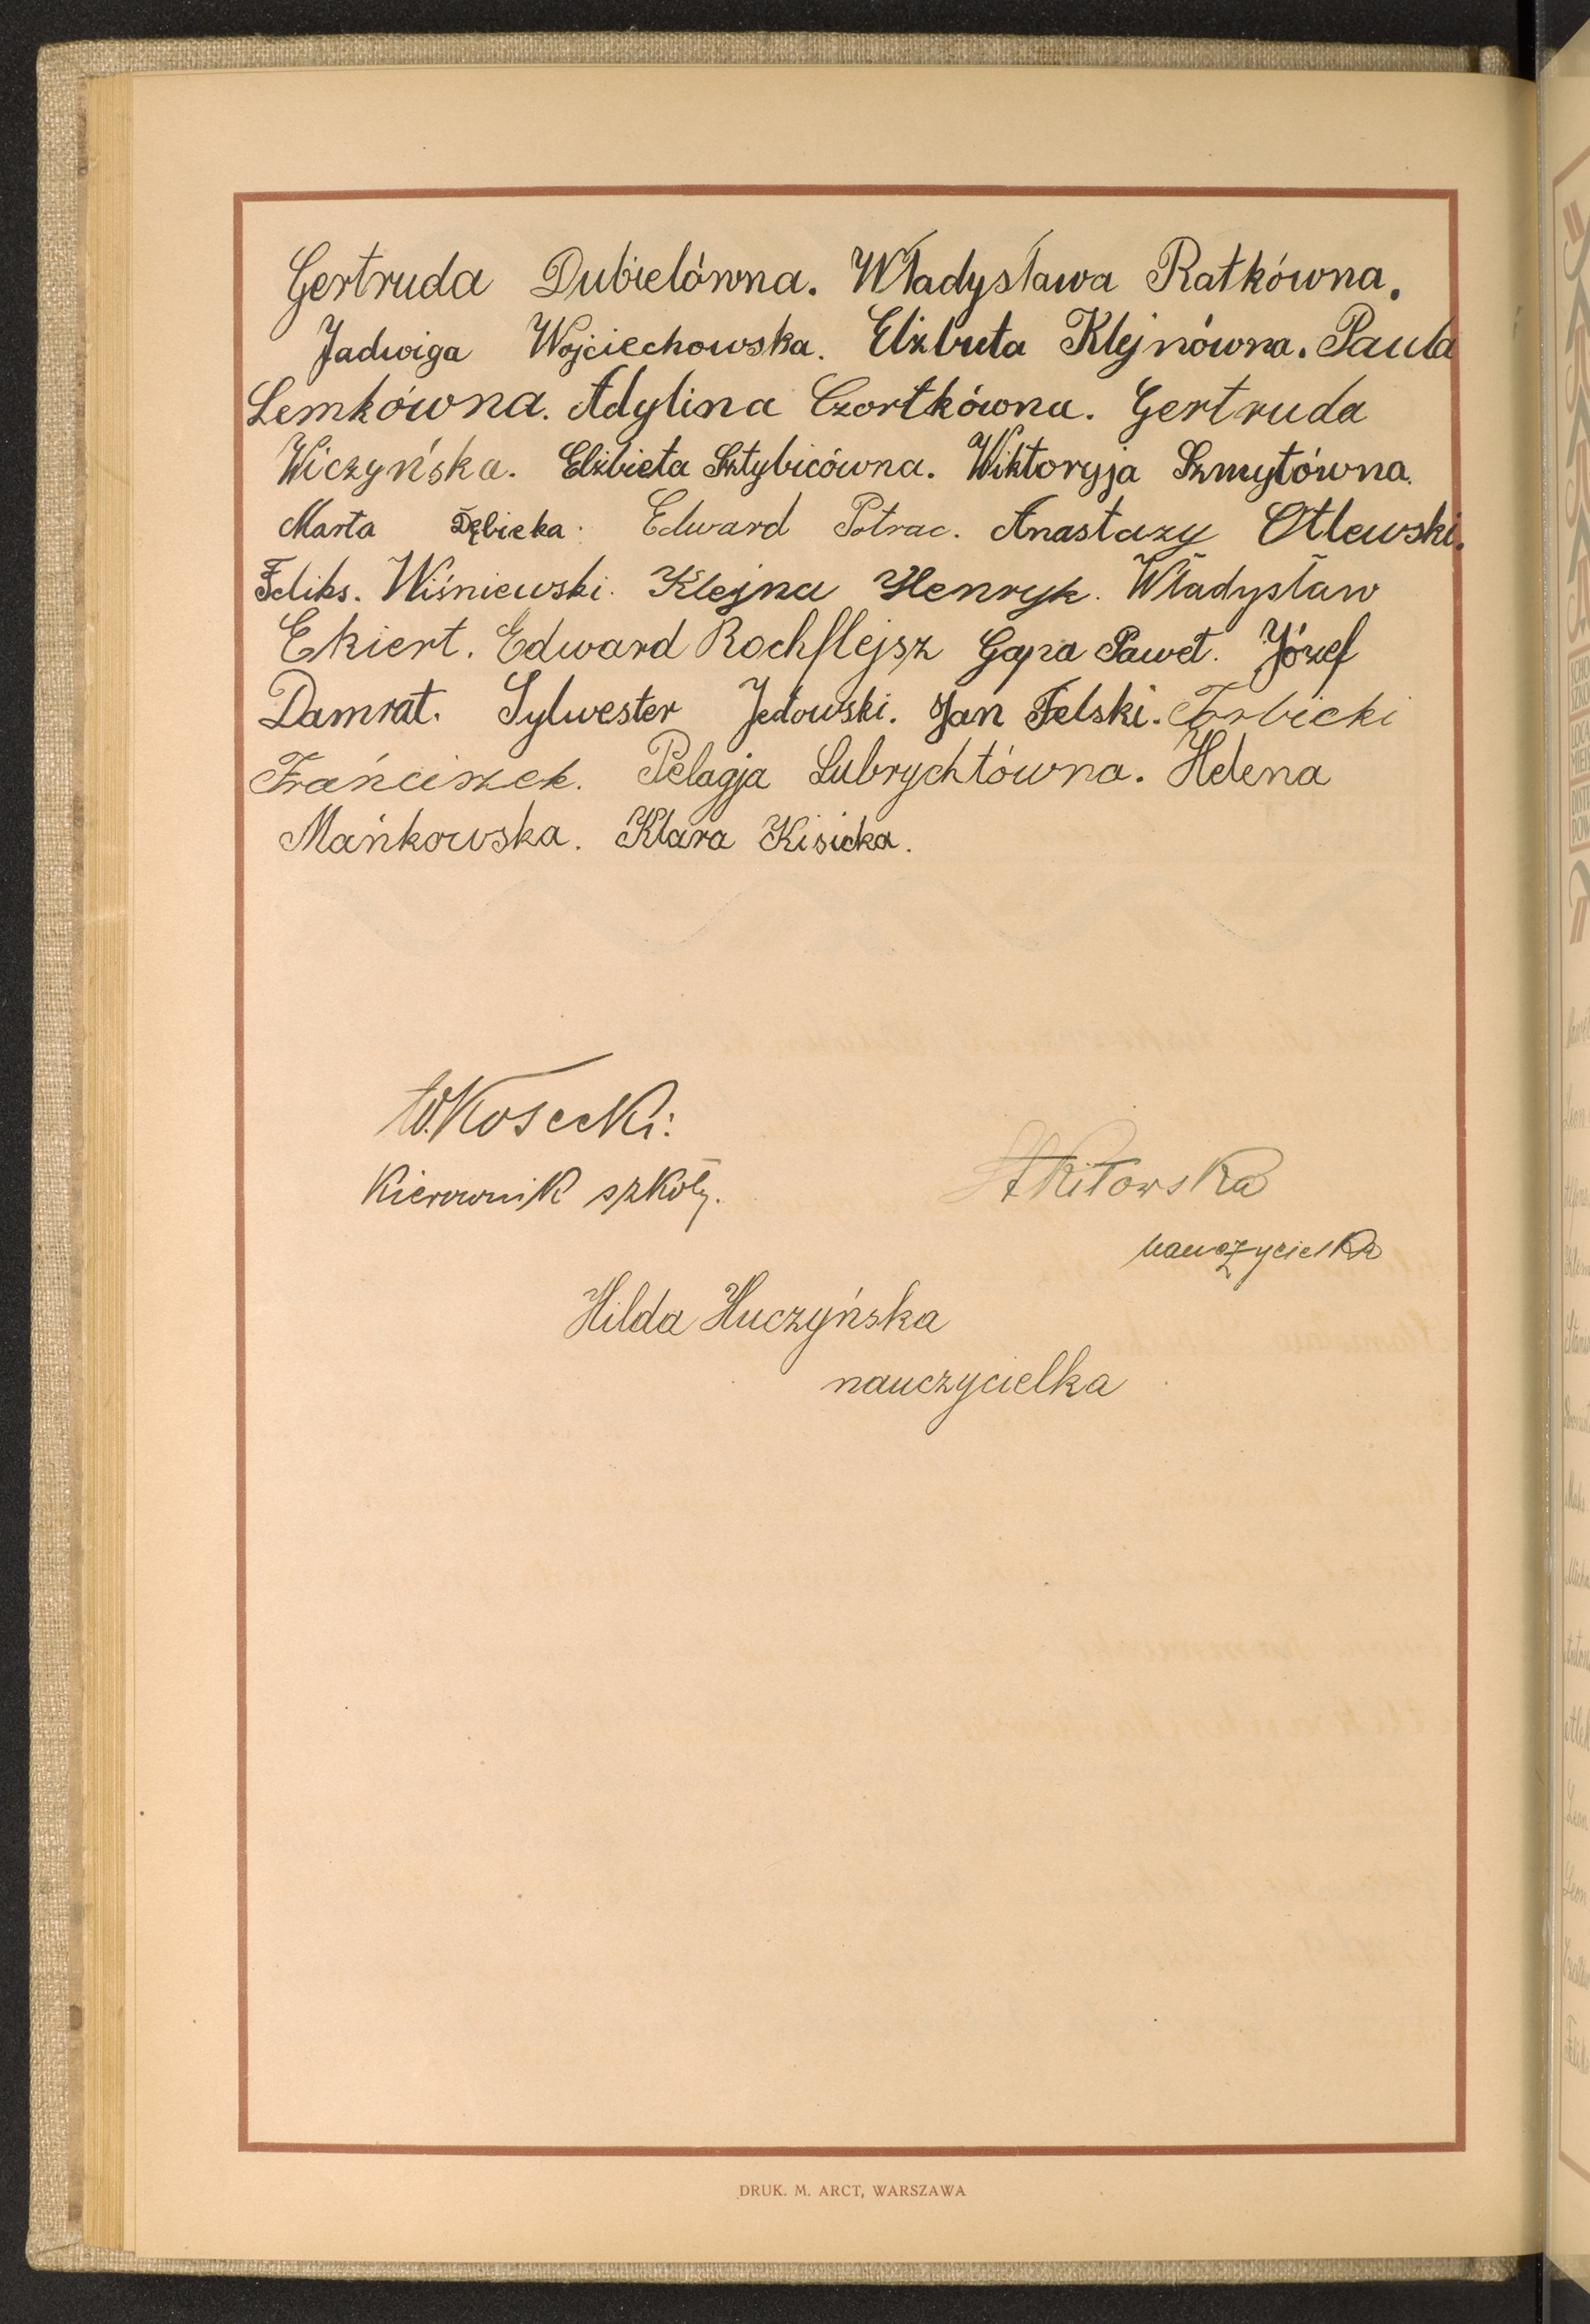 Gertruda Dubielówna. Władysława Ratkówna.
Jadwiga Wojciechowska. Elżbieta Klejnówna. Paula
Lemkówna. Adylina Czortkówna. Gertruda
Wiczyńska. Elżbieta Sztybicówna. Wiktoryja Szmytówna.
Marta Dębicka. Edward Potrac. Anastazy Otlewski.
Feliks. Wiśniewski. Klejna Henryk. Władysław
Ekiert. Edward Rochflejsz Gapa Paweł. Józef
Damrat. Sylwester Jedowski. Jan Felski. Torbicki
Frańciszek. Pelagja Lubrychtówna. Helena
Mańkowska. Klara Kisicka.
W. Kosecki:
Kierownik szkoły.
St Kitowska
nauczycielka
Hilda Huczyńska
nauczycielka
DRUK. M. ARCT, WARSZAWA